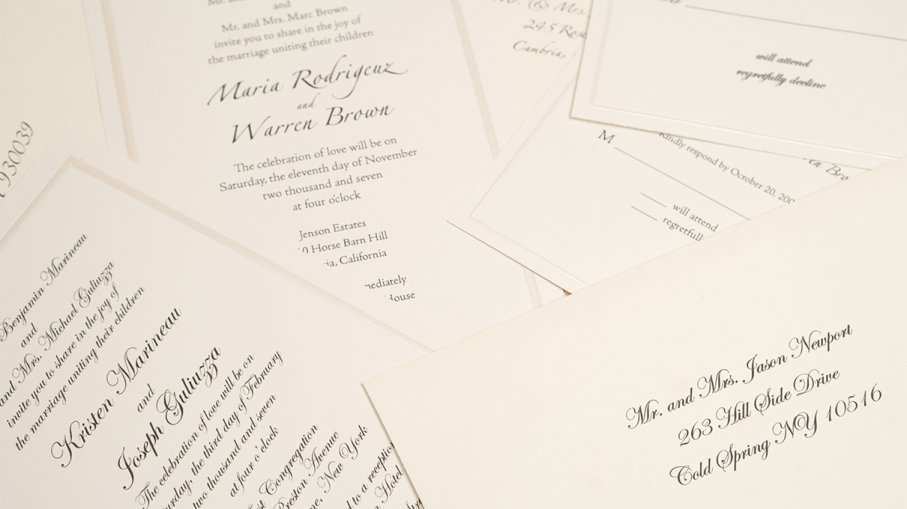 and
Mr. and Mrs. Marc Brown
invite you to share in the joy of
the marriage uniting their children
Maria Rodrigeuz
and
Warren Brown
The celebration of love will be on
Saturday, the eleventh day of November
two thousand and seven
at four oclock
Jenson Estates
Horse Barn Hill
California
245
Cambria,
will attend
regretfully decline
M
Kindly respond by October 20,
will attend
930039
Benjamin Marineau
and
and Mrs. Michael Guliuzza
invite you to share in the joy of
the marriage uniting their children
Kristen Marineau
and
Joseph Guliuzza
The celebration of love will be on
the third day of February
two thousand and seven
at four o'clock
Congregation
Avenue
New York
to a reception
Hotel
Mr. and Mrs. Jason Newport
263 Hill Side Drive
Cold Spring NY 10516